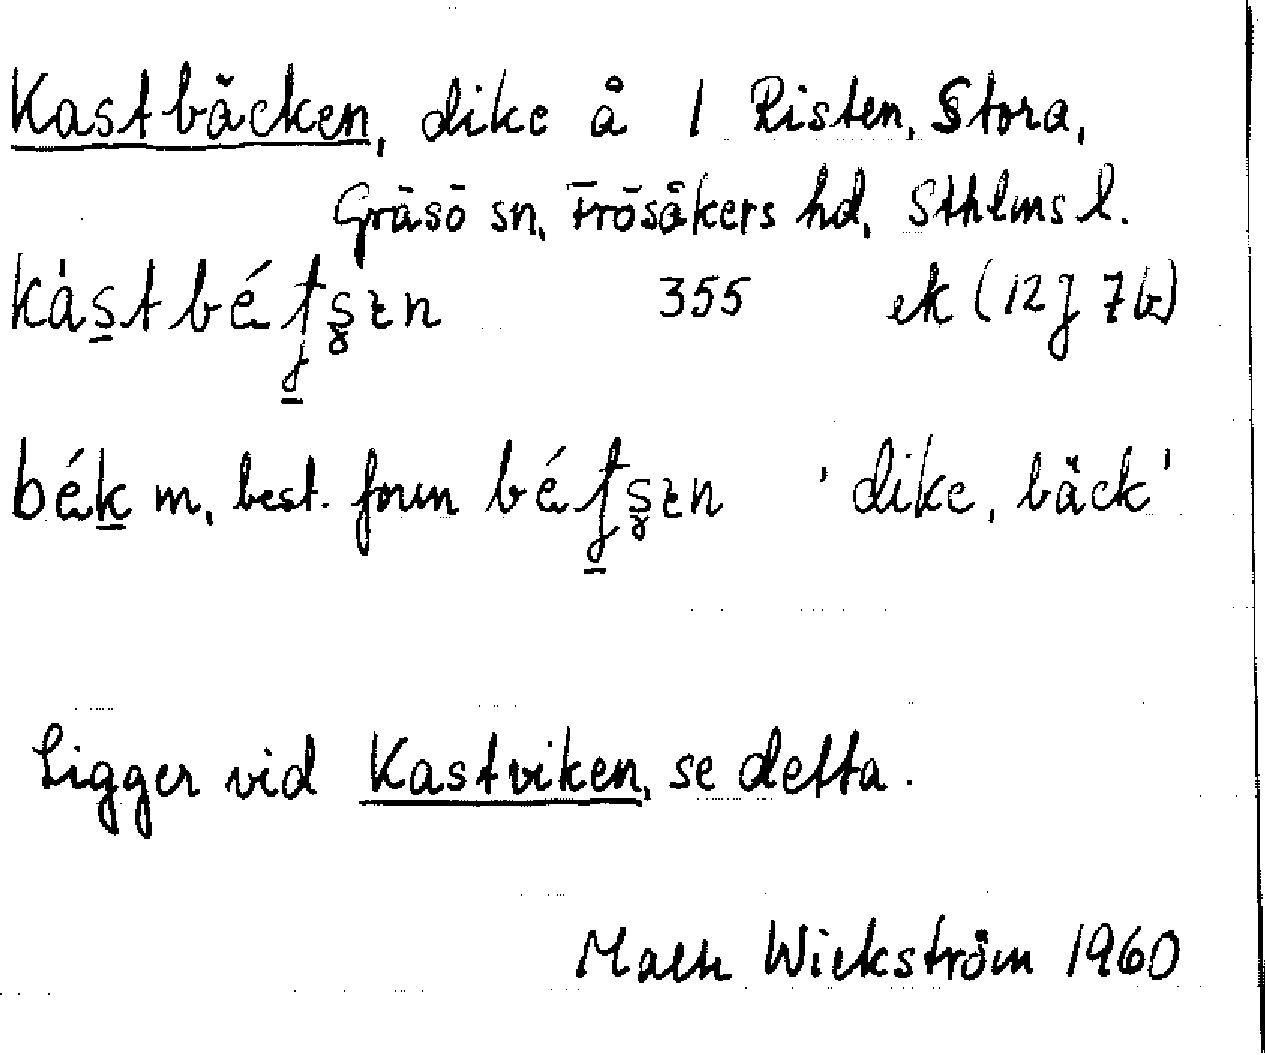 Kastbäcken, dike å 1 Risten, Stora,
Gräsö sn, Frösåkers hd, Sthlms l.
355 ek (12J 7b)
m, best. form 'dike, bäck'
Ligger vid Kastviken, se detta.
Wickström 1960